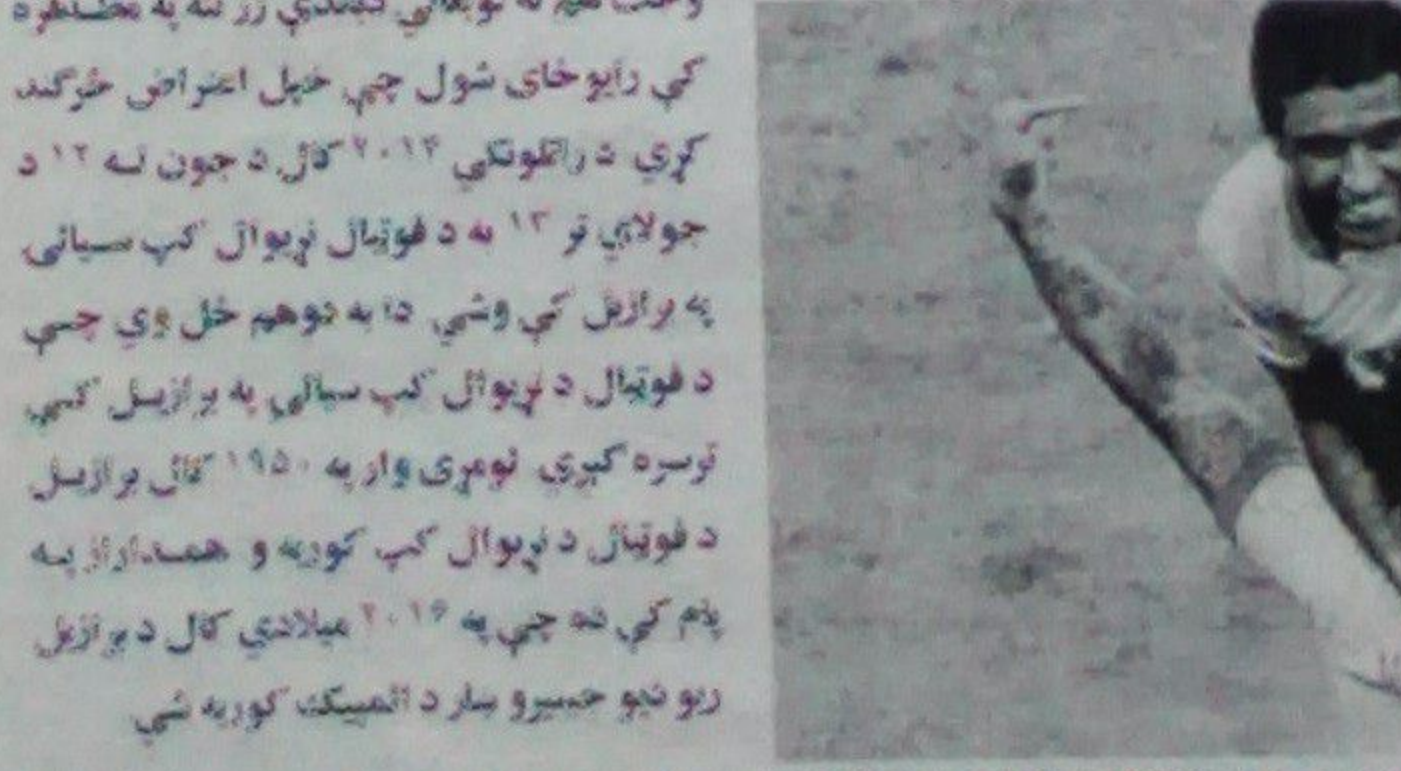 کې رایوځای شول چې خپل اعتراض څرګند
کړي د راتلونکي ۲۰۱۴ کال د جون له ۱۲ د
جولای تر ۱۳ به د فوټبال نړیوال کپ سیالۍ
په برازیل کې وشي دا به دوهم ځل وي چې
د فوټبال د نړیوال کپ سیالۍ په برازیل کې
ترسره کیږي لومړی وار په ۱۹۵۰ کال برازیل
د فوټبال د نړیوال کپ کوربه و همداراز په
پام کې ده چې په ۲۰۱۶ میلادي کال د برازیل
ریو ښار د المپیک کوربه شي